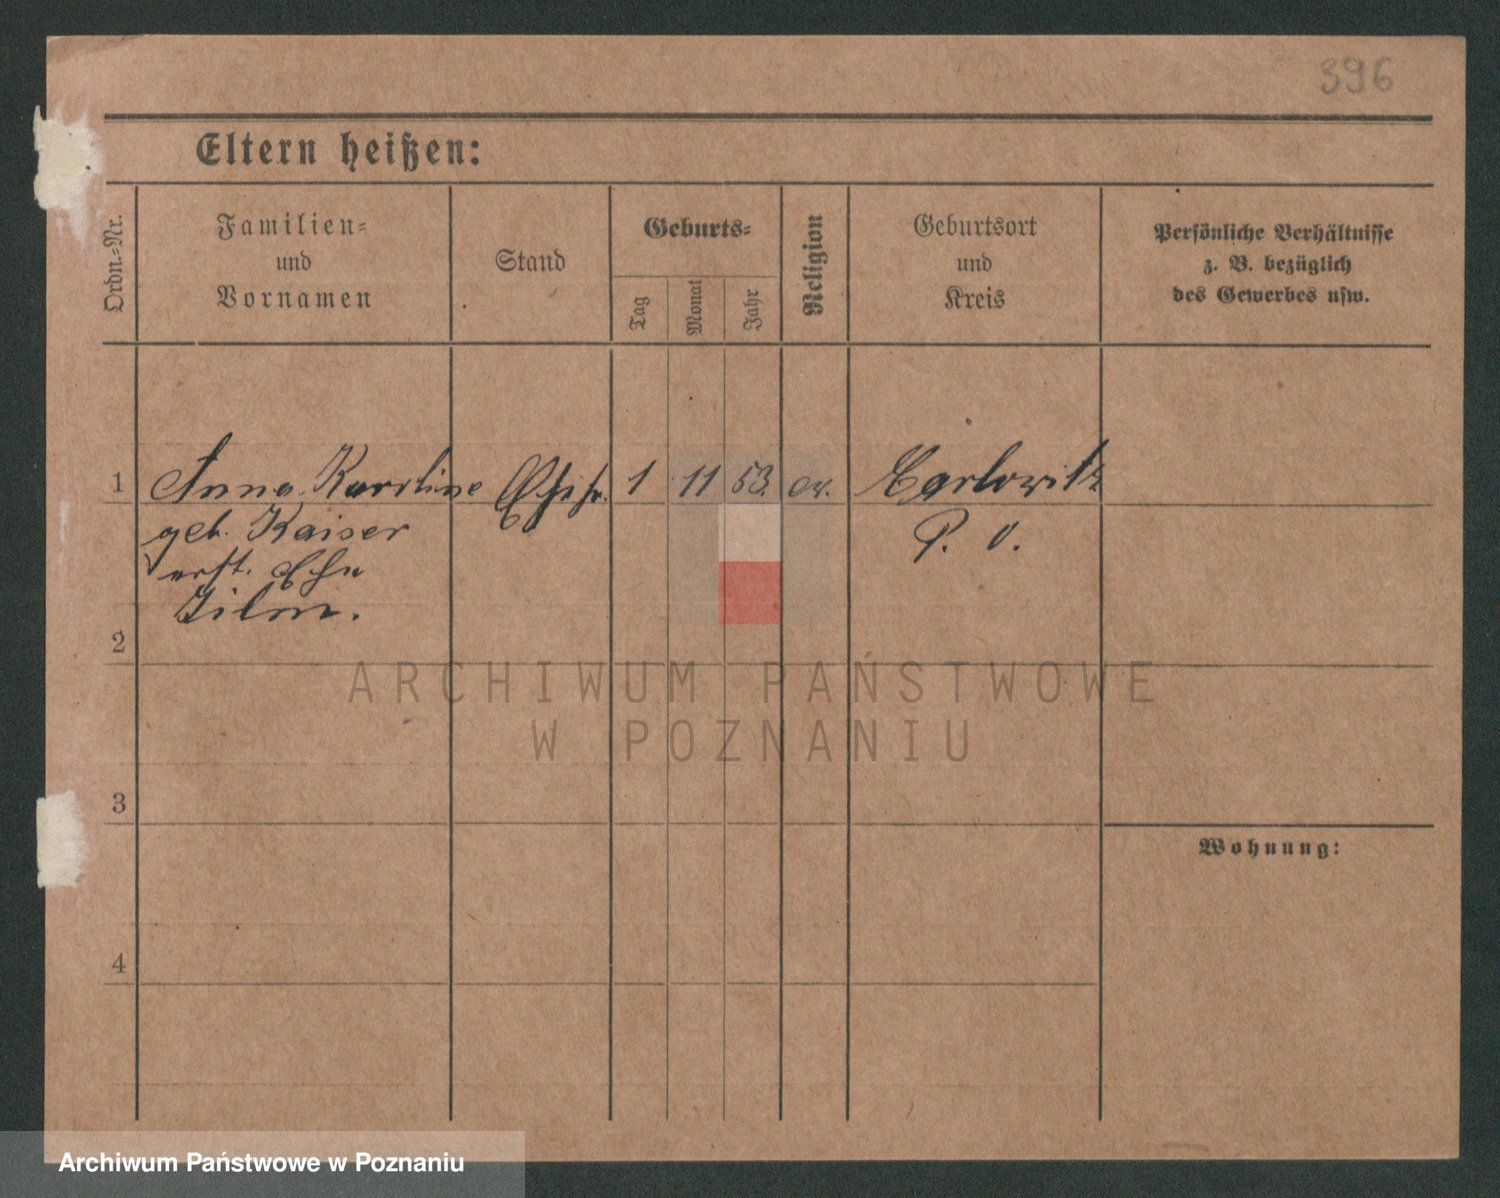 396
Eltern heißen:
Ordn.=Nr.
Familien=
und
Vornamen
Stand
Geburts=
Tag
Monat
Jahr
Religion
Geburtsort
und
Kreis
Persönliche Verhältnisse
z. B. bezüglich
des Gewerbes usw.
1 Anna Karoline Ehefr. 1 11 53. ev. Carlowitz
geb. Kaiser P. O.
erst. Ehe
2
ARCHIWUM PAŃSTWOWE
W POZNANIU
3
Wohnung:
4
Archiwum Państwowe w Poznaniu